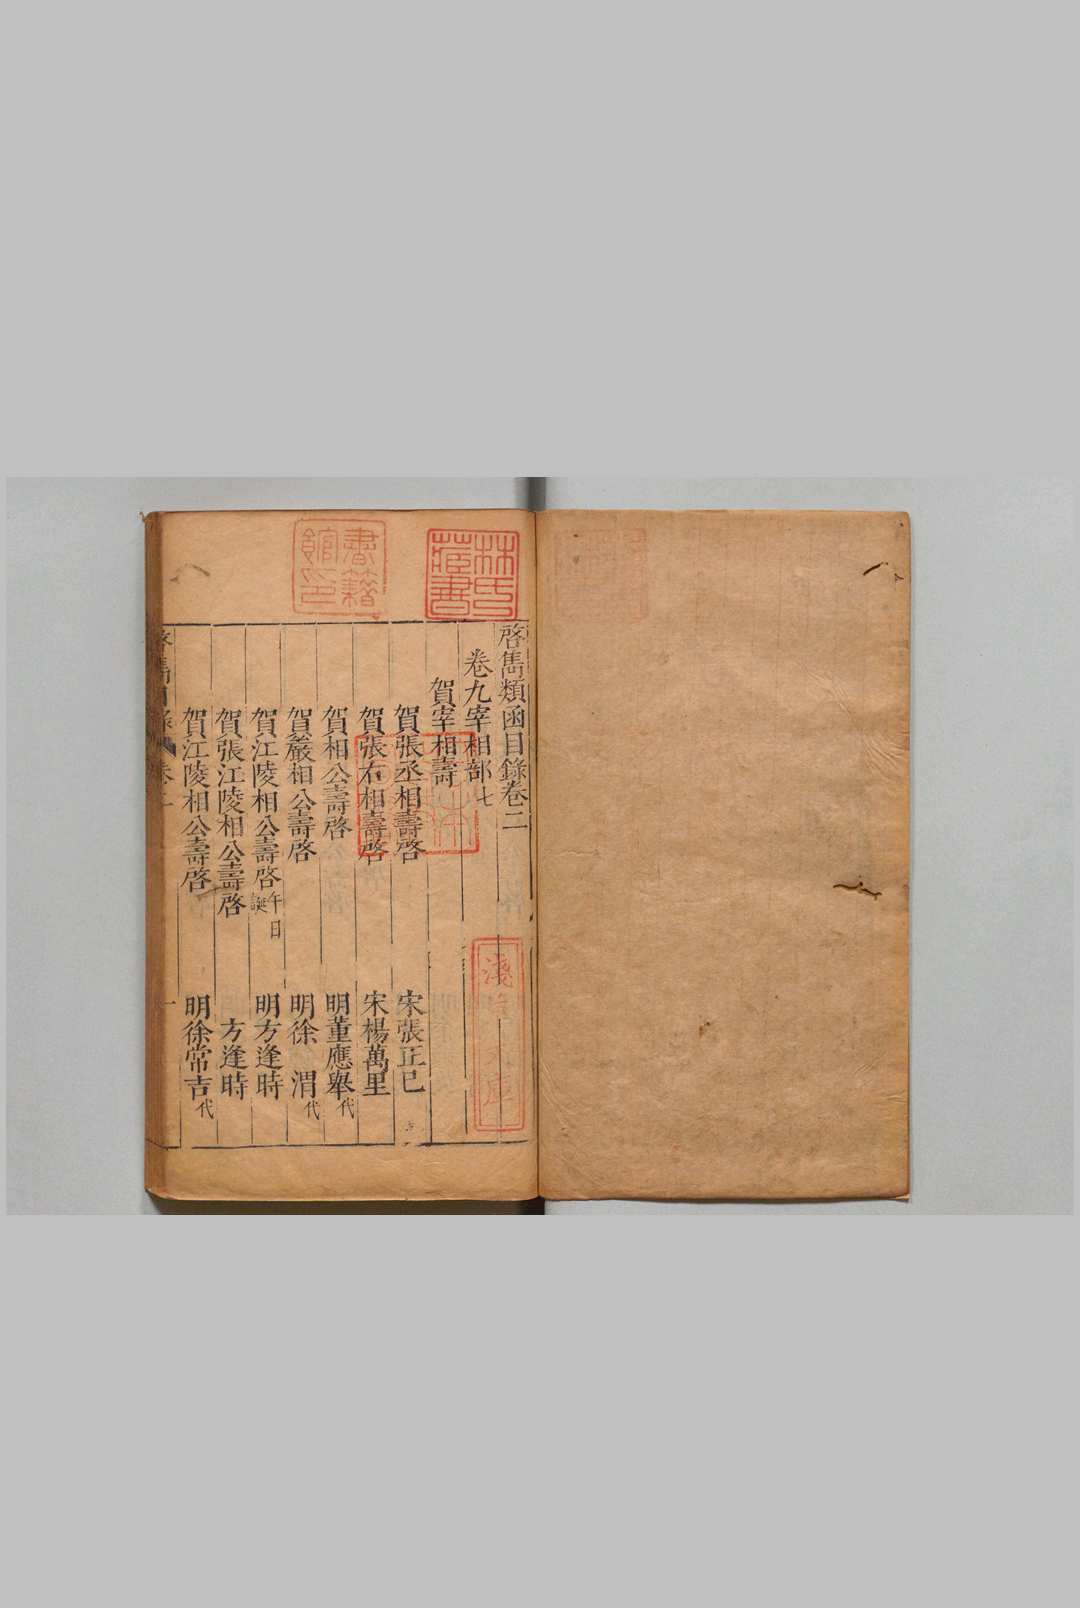 啓雋類函目錄卷二
卷九宰相部七
賀宰相壽
賀張丞相壽啓 宋張正已
賀張右相壽啓 宋楊萬里
賀相公壽啓 明董應舉代
賀嚴相公壽啓 明徐 渭代
賀江陵相公壽啓午日誕 明方逢時
賀張江陵相公壽啓 方逢時
賀江陵相公壽啓 明徐常吉代
林氏藏書
書籍館印